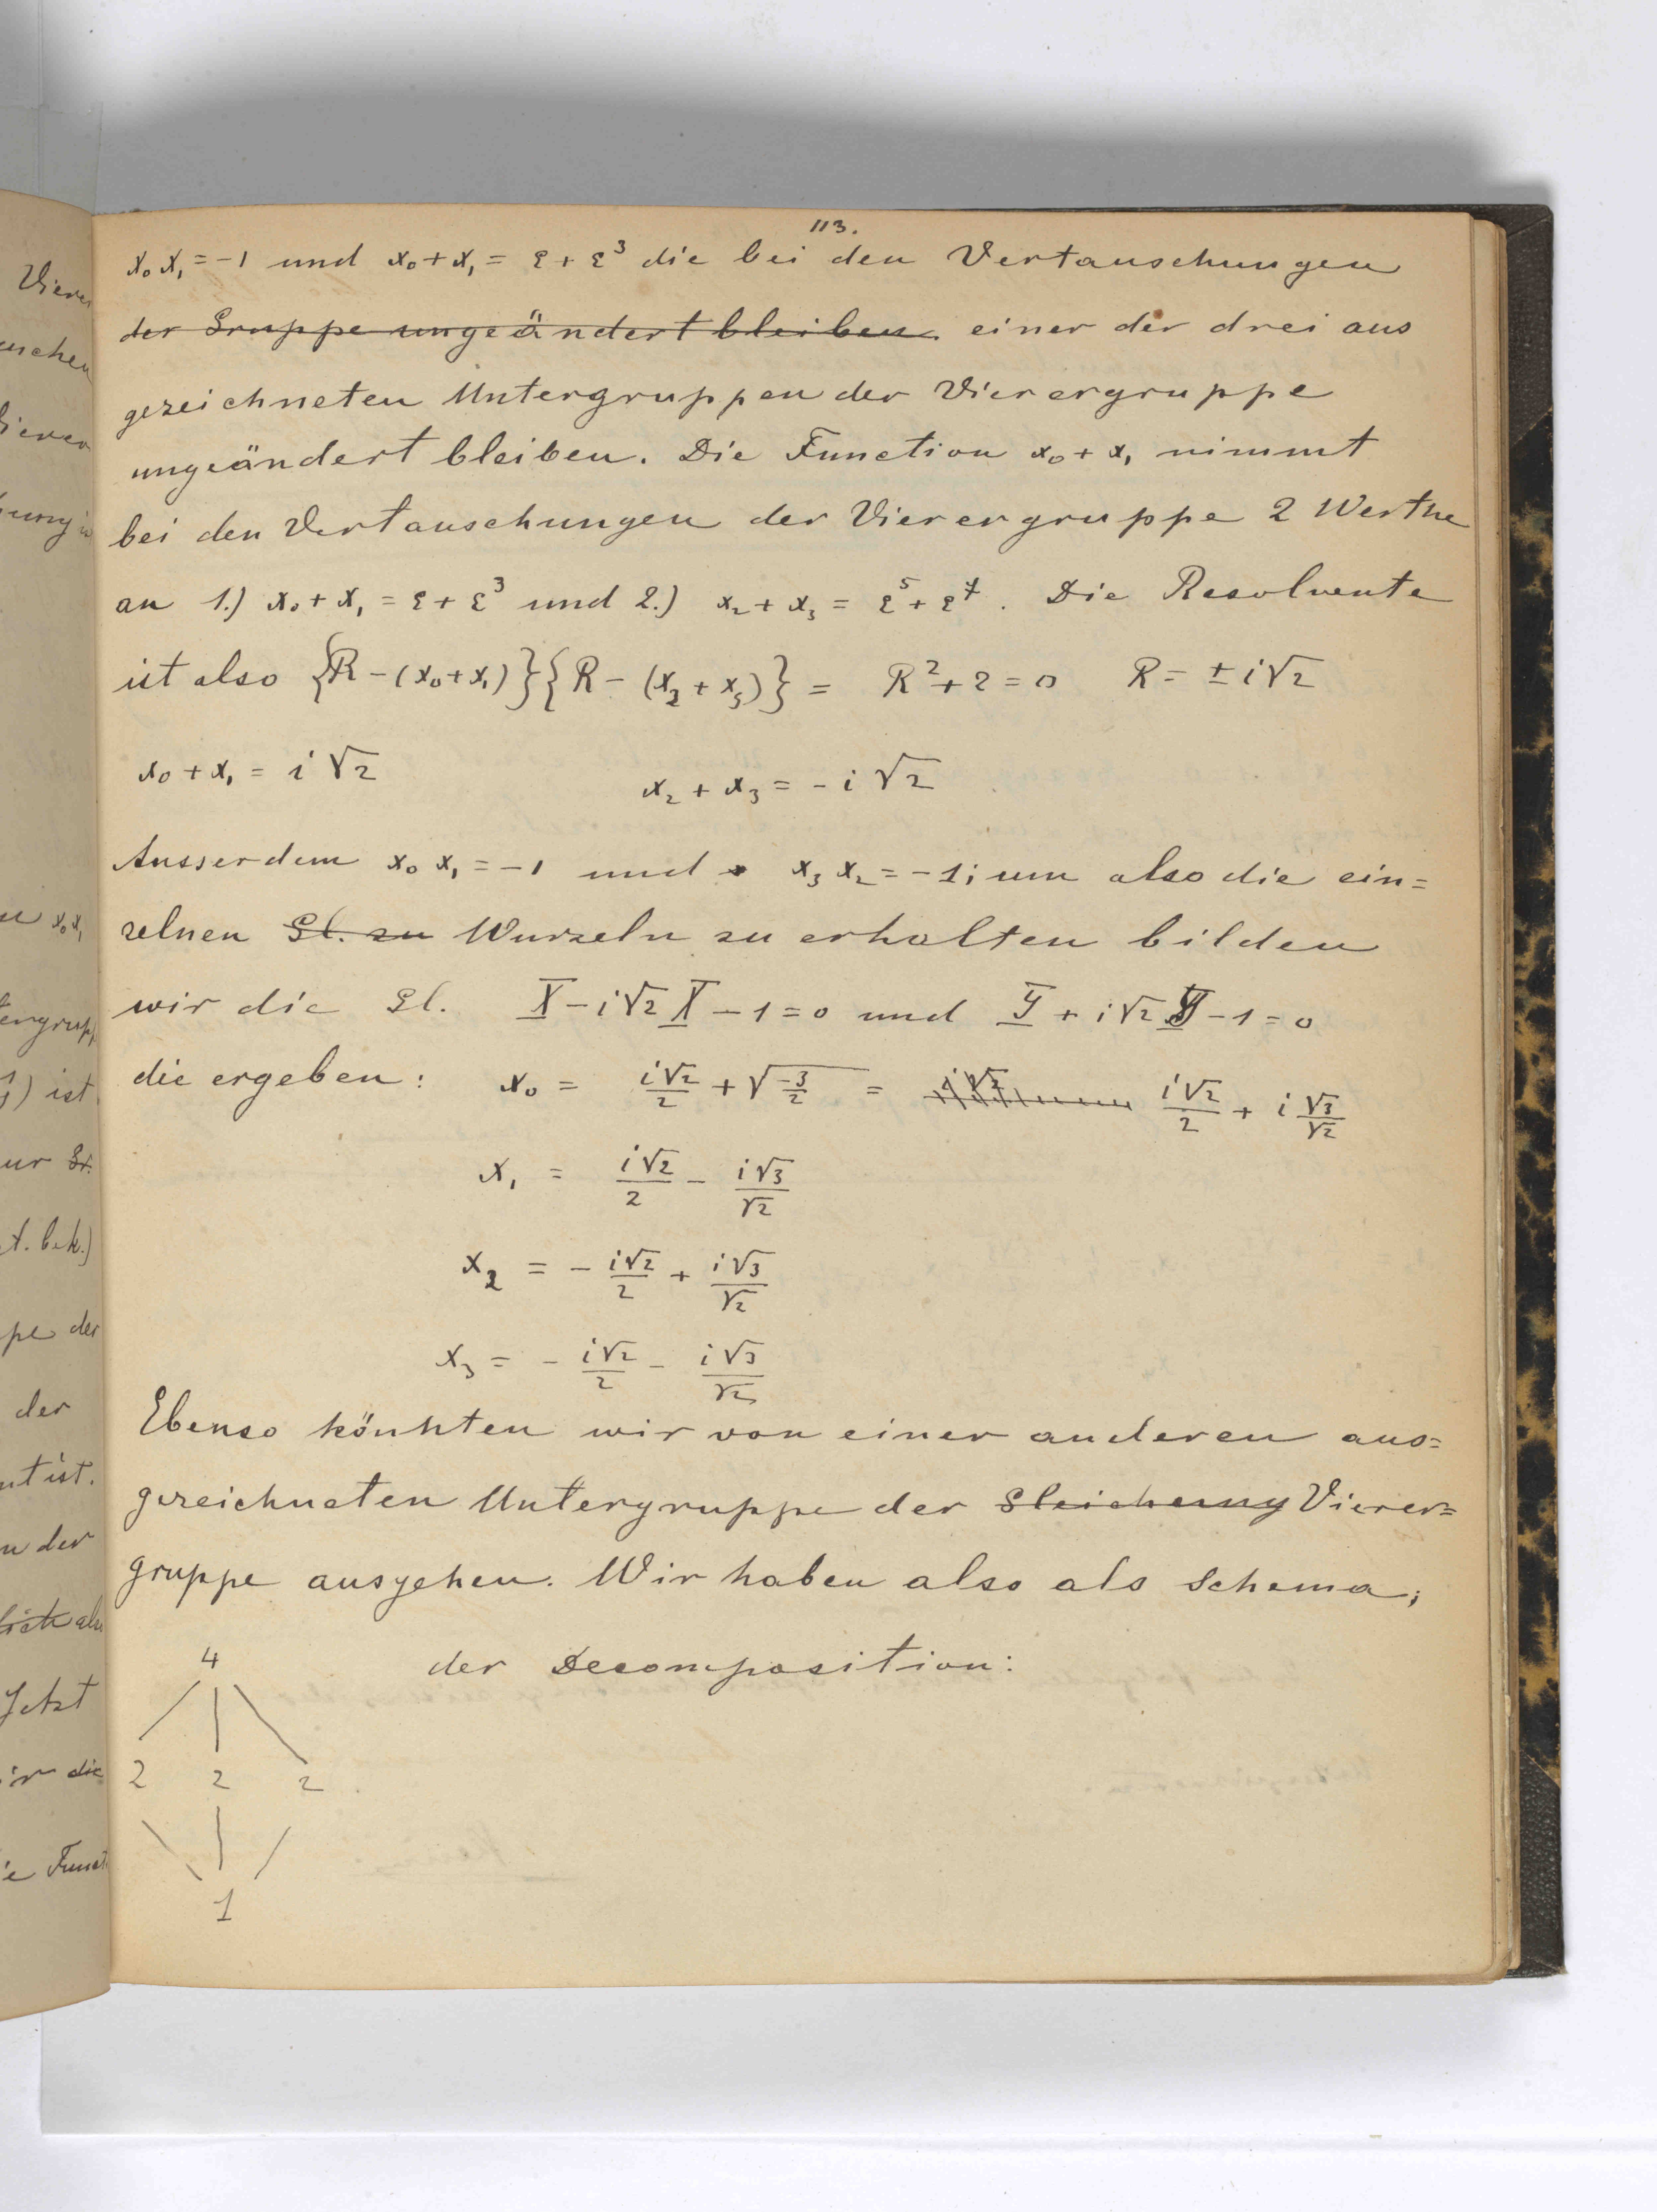 113.
x₀x₁ = -1 und x₀+x₁ = ε+ε³ die bei den Vertauschungen
~~der Gruppe ungeändert bleiben.~~ einer der drei aus
gezeichneten Untergruppen der Vierergruppe
ungeändert bleiben. Die Function x₀+x₁ nimmt
bei den Vertauschungen der Vierergruppe 2 Werthe
an 1.) x₀+x₁ = ε+ε³ und 2.) x₂+x₃ = ε⁵+ε⁷. Die Resolvente
ist also {R-(x₀+x₁)}{R-(x₂+x₃)} = R²+2=0 R= ±i√2
x₀+x₁ = i√2 x₂+x₃ = -i√2
Ausserdem x₀x₁ = -1 und x₃x₂ = -1; um also die ein=
zelnen ~~Gl. zu~~ Wurzeln zu erhalten bilden
wir die Gl. X - i√2 X - 1 = 0 und Y + i√2 Y - 1 = 0
die ergeben: x₀ = i√2/2 + √(-3/2) = i√2/2 + i √3/√2
x₁ = i√2/2 - i√3/√2
x₂ = - i√2/2 + i√3/√2
x₃ = - i√2/2 - i√3/√2
Ebenso könnten wir von einer anderen aus=
gezeichneten Untergruppe der ~~Gleichung~~ Vierer=
gruppe ausgehen. Wir haben also als Schema;
der Decomposition:
4
2 2 2
1
Vierer
x₀x₁
) ist
t. bek.)
der
ist.
der
Jetzt
die